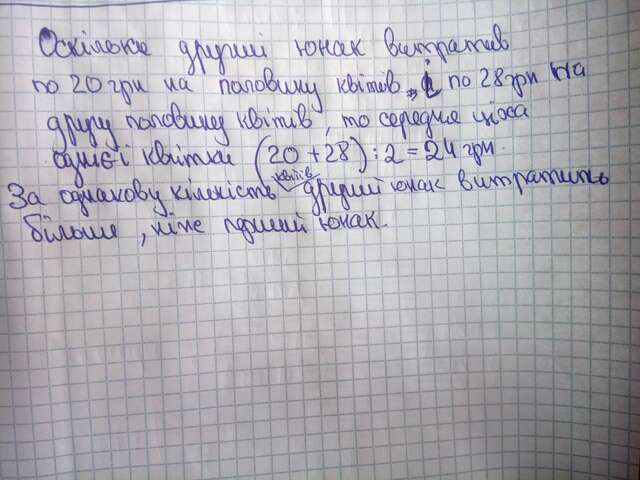 Оскільки другий юнак витратив
по 20 грн на половину квітів, і по 28 грн на
другу половину квітів, то середня ціна
однієї квітки (20+28):2=24 грн.
За однакову кількість квітів другий юнак витратить
більше, ніж перший юнак.